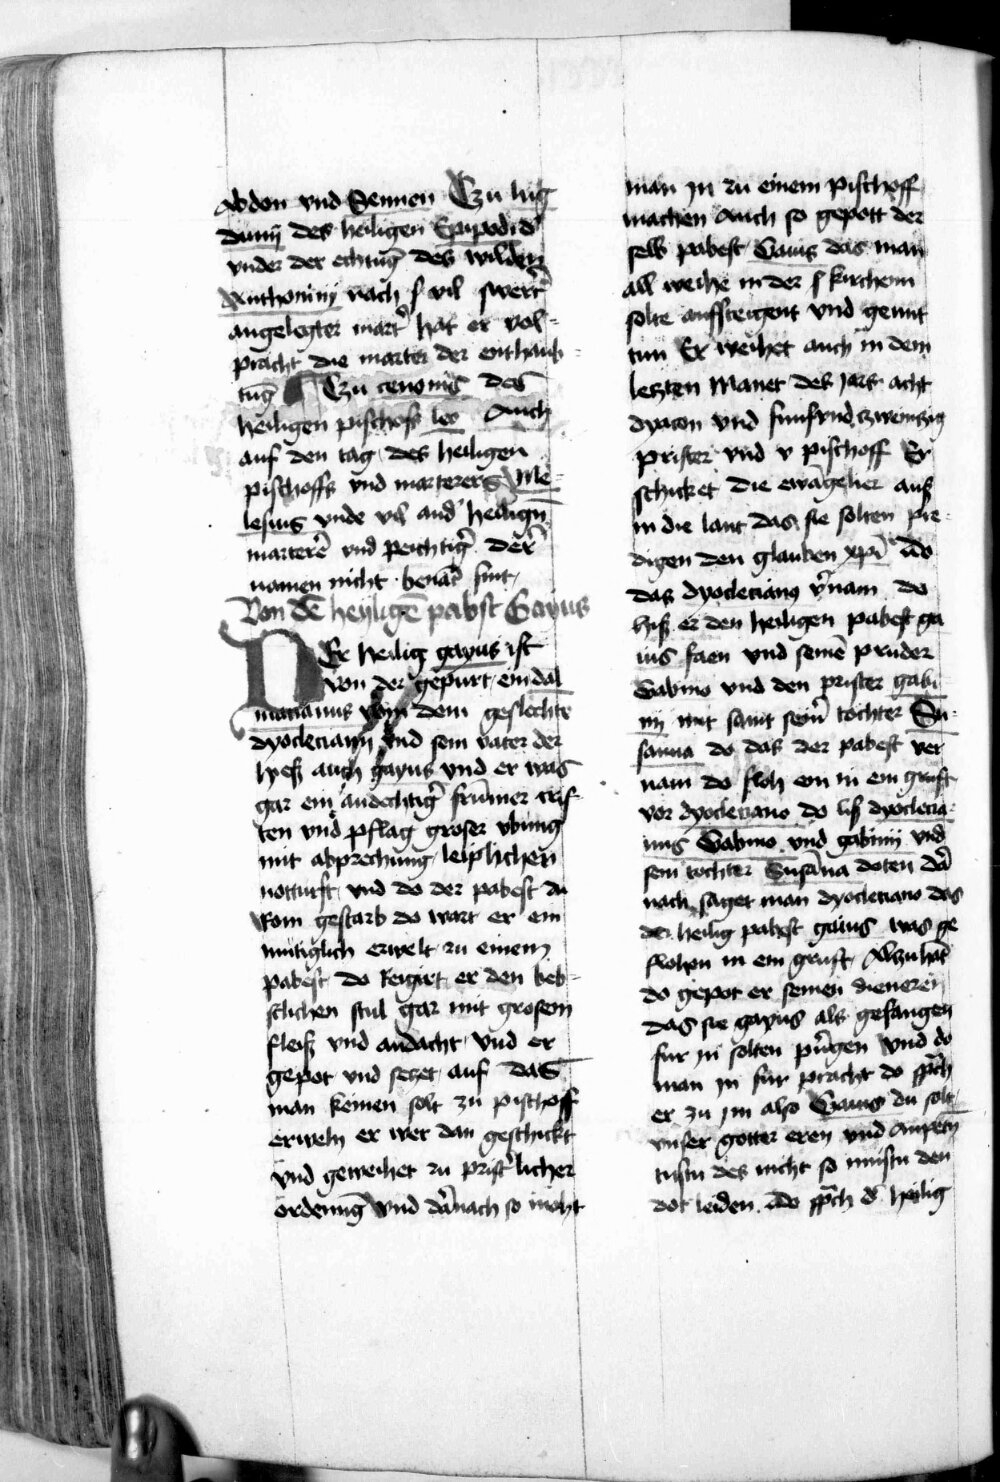 Abdon vnd Sennen Czu lug
dunij des heiligen Epipodi d'
vnder der echtūg des wilden
Anthoninij nach s vil swert'
angelegter mart' hat er vol-
pracht die marter der enthaub-
tūg Czu cenomis des
heiligen pischofs leo Auch
auf den tag des heiligen
pischoffs vnd marterers Me-
lesius vnde vil and' heilign̄
marterē vnd peichtig' der'
namen nicht benāt sint
Von dē heyligē pabst Gayus
DEr heilig gayus ist
von der gepurt ein dal
macianus von dem geslechte
dyocleciani vnd sein vater der
hyeß auch gayus vnd er was
gar ein andechtig' frūmer cris-
ten vnd pflag groser vbung
mit abprechung leiplichen
notturft vnd do der pabest zu
Rom gestarb do wart er ein
mutiglich erwelt zu einem
pabest do Regirt er den beb-
stlichen stul gar mit grosem
fleiß vnd andacht vnd er
gepot vnd seczet auf das
man keinen solt zu pischoff
erweln er wer dan geschickt
vnd geweihet zu prist'licher
ordenūg vnd d'nach so mocht
man in zu einem pischoff
machen Auch so gepott der
selb pabest Gaius das man
all weihe in der s kirchenn
solte auffsteigent vnd
tun Er weihet auch in dem
leczten Manet des Jars acht
dyacon vnd funfvndczwenczig
prister vnd v pischoff Er
schicket die ewāgelier auß
in die lant das sie solten pre-
digen den glauben xpī Do
das dyoclecianus v'nam do
hiß er den heiligen pabest ga
ius faen vnd seinē pruder
Gabino vnd den prister gabi
nij mit samt sein' tochter Su-
sanna do das der pabest ver
nam do floh er in ein gruft
vor dyocleciano do liß dyoclecia-
nus Gabino vnd gabinij vnd
sein tochter Susāna doten d'
nach saget man dyocleciano das
der heilig pabest gaius was ge
flohen in ein gruft Alczuhāt
do gepot er seinen dieneren
das sie gayus als gefangen
fur in solten p'ngen vnd do
man in fur pracht do sp'ch
er zu im also Gaius du solt
vnser gotter eren vnd anpetn
tustu des nicht so mustu den
dot leiden Do sp'ch d' heilig